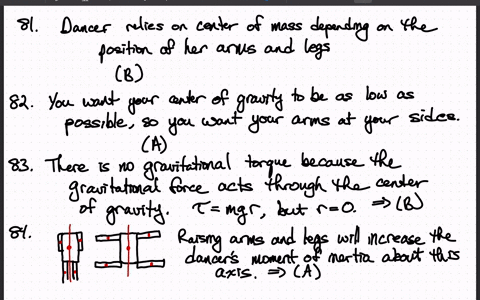 81. Dancer relies on center of mass depending on the
position of her arms and legs
(B)
82. You want your center of gravity to be as low as
possible, so you want your arms at your sides.
(A)
83. There is no gravitational torque because the
gravitational force acts through the center
of gravity. τ = mgr, but r=0. ⇒ (B)
84. Raising arms and legs will increase the
dancer's moment of inertia about this
axis. ⇒ (A)